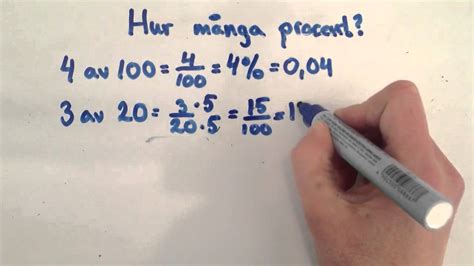 Hur många procent?
4 av 100 = 4/100 = 4% = 0,04
3 av 20 = 3·5/20·5 = 15/100 = 1